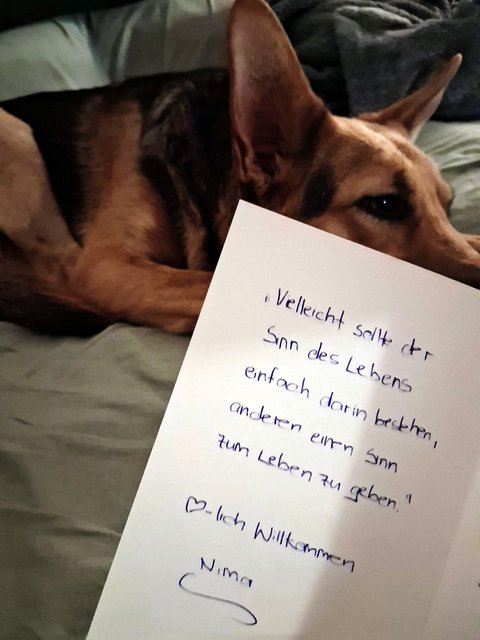 "Vielleicht sollte der
Sinn des Lebens
einfach darin bestehen,
anderen einen Sinn
zum Leben zu geben."
♡-lich Willkommen
Nima